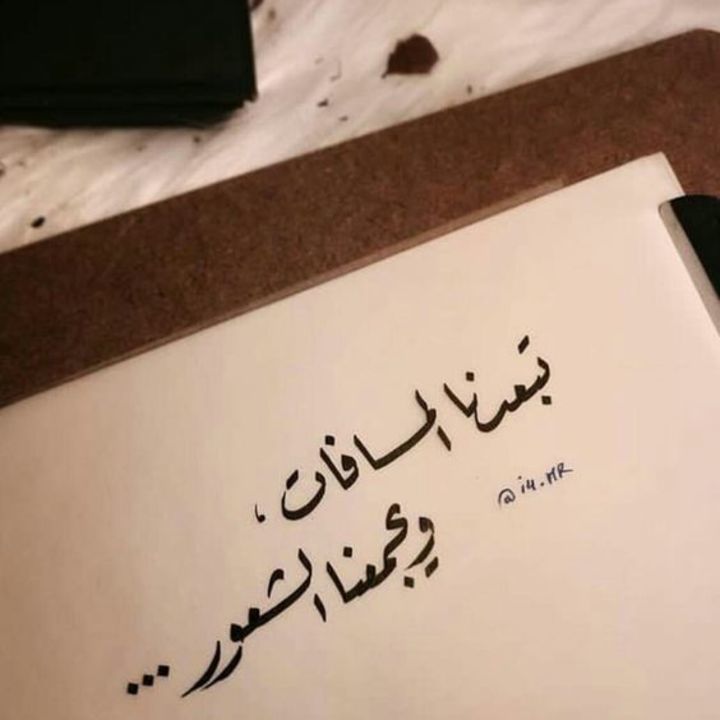 تبعدنا المسافات ،
@i4.MR
ويجمعنا الشعور ...